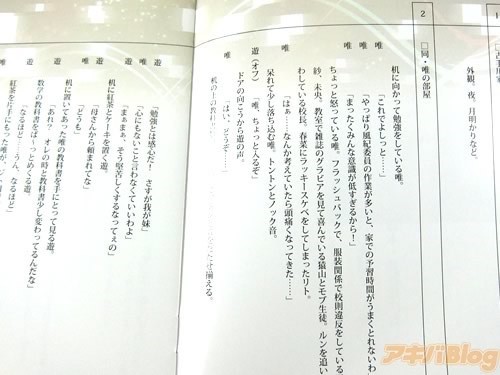 1
□古手川家
外観。夜。月明かりなど。
2
□同・唯の部屋
机に向かって勉強をしている唯。
唯
「これでよしっと……」
唯
「やっぱり風紀委員の作業が多いと、家での予習時間がうまくとれないわ
唯
「まったくみんな意識が低すぎるから!」
ちょっと怒っている唯。フラッシュバックで、服装関係で校則違反をしている
紗、未央。教室で雑誌のグラビアを見て喜んでいる猿山とモブ生徒。ルンを追い
わしている校長。春菜にラッキースケベをしてしまったリト。
唯
「はぁ……なんか考えていたら頭痛くなってきた……」
呆れて少し落ち込む唯。トントンとノック音。
遊(オフ)
「唯、ちょっと入るぞ」
ドアの向こうから遊の声。
唯
「はい、どうぞ……」
机の上の教科書
揃える。
遊
「勉強とは感心だ! さすが我が妹」
唯
「心にもないこと言わなくていいわよ」
遊
「まぁまぁ、そう堅苦しくするなってぇの」
机に紅茶とケーキを置く遊。
遊
「母さんから頼まれてな」
唯
「どうも」
机に置いてあった唯の教科書を手にとって見る遊。
遊
「あれ? オレの時と教科書少し変わってるんだな」
数学の教科書をぱ〜っとめくる遊。
遊
「なるほど……うん、なるほど」
紅茶を片手にもった唯が、ジ
アキバBlog